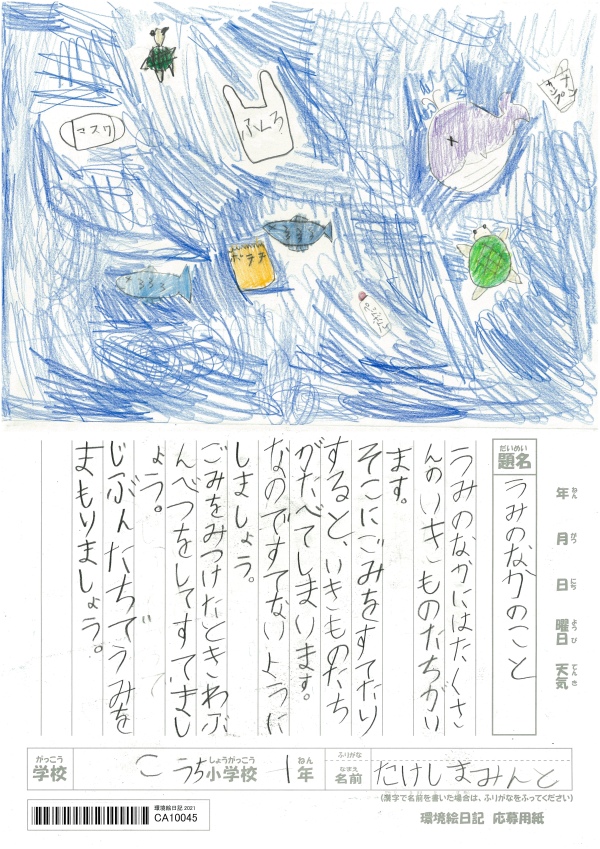 マスク
ふくろ
ポテチ
年 ねん
月 がつ
日 にち
曜日 ようび
天気 てんき
だいめい
題名
うみのなかのこと
うみのなかにはたくさ
んのいきものたちがい
ます。
そこにごみをすてたり
すると、いきものたち
がたべてしまいます。
なのですてないように
しましょう。
ごみをみつけたときわぶ
んべつをしてすてまし
ょう。
じぶんたちでうみを
まもりましょう。
がっこう しょうがっこう ねん ふりがな
学校 こうち小学校 1年 なまえ 名前 たけしまみんと
(漢字で名前を書いた場合は、ふりがなをふってください)
環境絵日記 2021
CA10045
環境絵日記 応募用紙